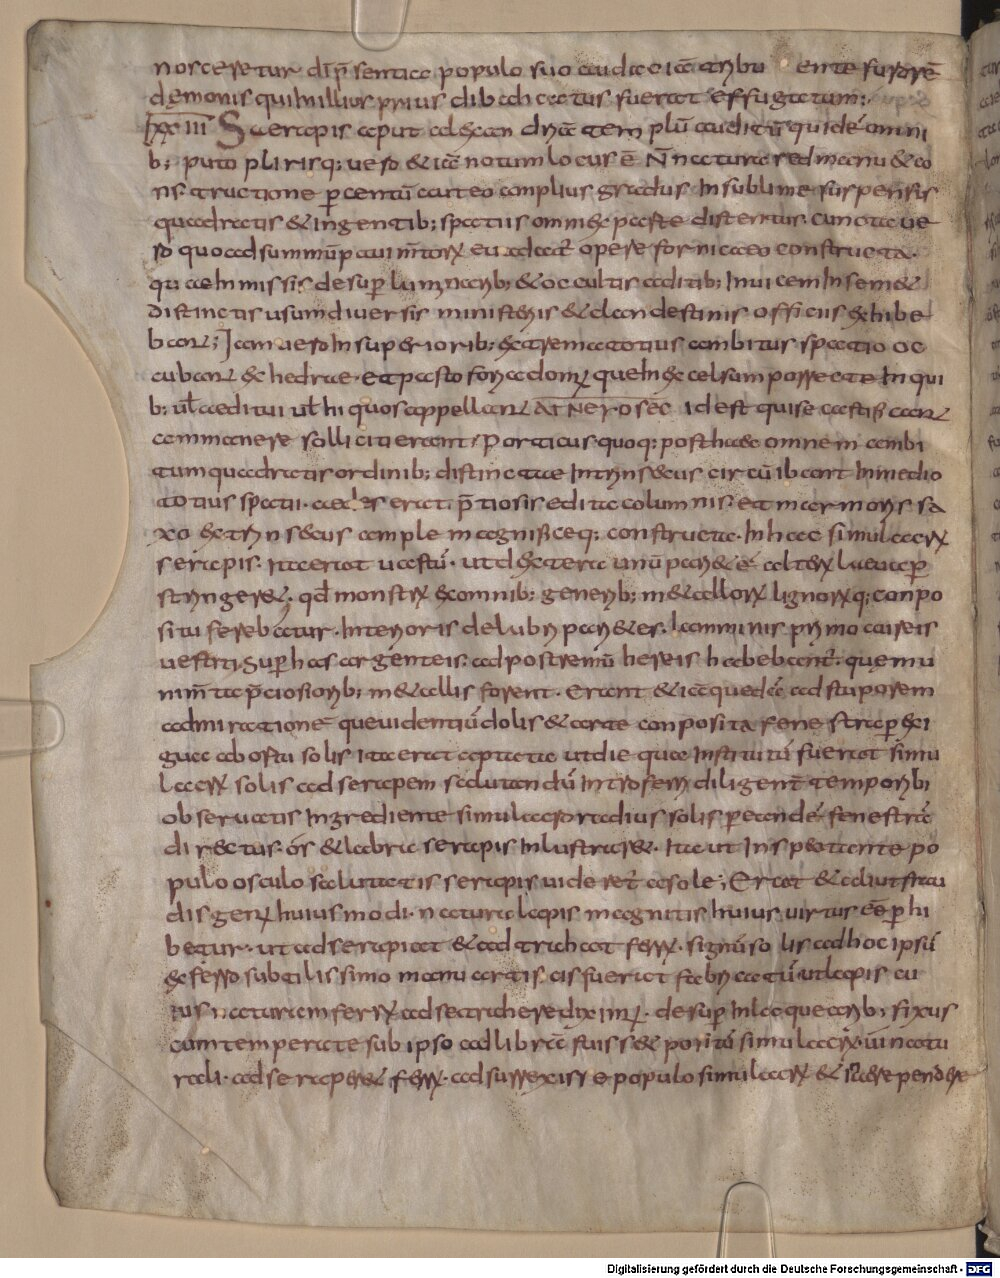 nosceretur dī p̄sentiae populo suo audaciā tribu ente furorē
demonis qui in illius prius dibachatus fuerat effugatum;
XXIII Serapis aput alexandriā templū auditū quidē omni
b; puto plerisq; uero & iā notum locus ē Non natura sed manu & co
nstructione p centū aut eo amplius gradus In sublime suspensus
quadratis & ingentib; spatiis omni ex parte distentus. cuncta ue
ro quo ad summū pauimentorum euadeat opere forniceo constructa.
quae Inmissis desuper luminarib; & occultis aditib; Inuicem In sem&
distinctis usum diuersis ministeriis & clandestinis officiis exhibe
bant; Iam uero In superiorib; extrema totius ambitus spatio oc
cubant exhedrae. et pasto foria domorum que In excelsum porrectae In qui
b; uel aeditui uel hi quos appellant ATNEROSEC id est qui se castificant
commanere solliciti erant. Porticus quoq; post haec omnem ambi
tum quadratis ordinib; distinctae Intrinsecus circūibant In medio
totius spatii. aedes erat p̄tiosis edita columnis et marmoris sa
xo extrinsecus ample magnificeq; constructa. In hac simulacrum
serapis. ita erat uastū. ut dextera unū pari&ē altera laeua per
stringer&. qđ monstrum ex omnib; generib; m&allorum lignorumq; conpo
situ ferebatur. Interioris delubri pari&es. lamminis primo aureis
uestiti. Super has argenteis. ad postremū hereis habebant. que mu
nimenta p̄ciosiorib; m&allis forent. Erant & iā quedā ad stuporem
admirationē que uidentiū dolis & arte conposita fenestra perexi
gua ab ortu solis ita erat aptata ut die qua Institutū fuerat simu
lacrum solis ad serapem salutandū Introferri diligenter temporibus
obseruatis Ingrediente simulacro radius solis p eandē fenestrā
directus. ós & labra serapis Inlustrar&. Ita ut Inspectante po
pulo osculo salutatis serapis uideretur a sole; Erat & aliut frau
dis genus huiusmodi. natura lapis magnitis huius uirtus eē perhi
betur. ut ad se rapiat & adtrahat ferrum. signū solis ad hoc ipsū
ex ferro subtilissimo manu artis. eis fuerat fabricatū ut lapis cu
ius naturam ferrum ad se trahere diximus. desuper In laquearib; fixus
cum temperate sub ipso ad librā fuiss& poritū simulacrum. ui natu
rali. ad se raper& ferrum. adsurrexisse populo simulacrum & In aere pendere
Digitalisierung gefördert durch die Deutsche Forschungsgemeinschaft - DFG